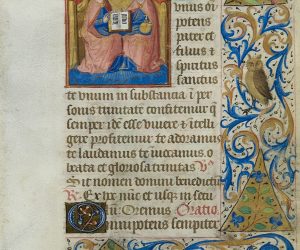 unus oi
potens
pater et
filius &
spiritus
sanctus
te unum in substancia i per
sonis trinitate confitemur q
semper i de esse vivere & itelli
gere profitemur te adoramus
te laudamus te invocamus o
beata et gloriosa trinitas Vs
Sit nomen domini benedictu
R Ex hoc nunc et usque in secu
Oremus Oratio
Omnipotens sempiter